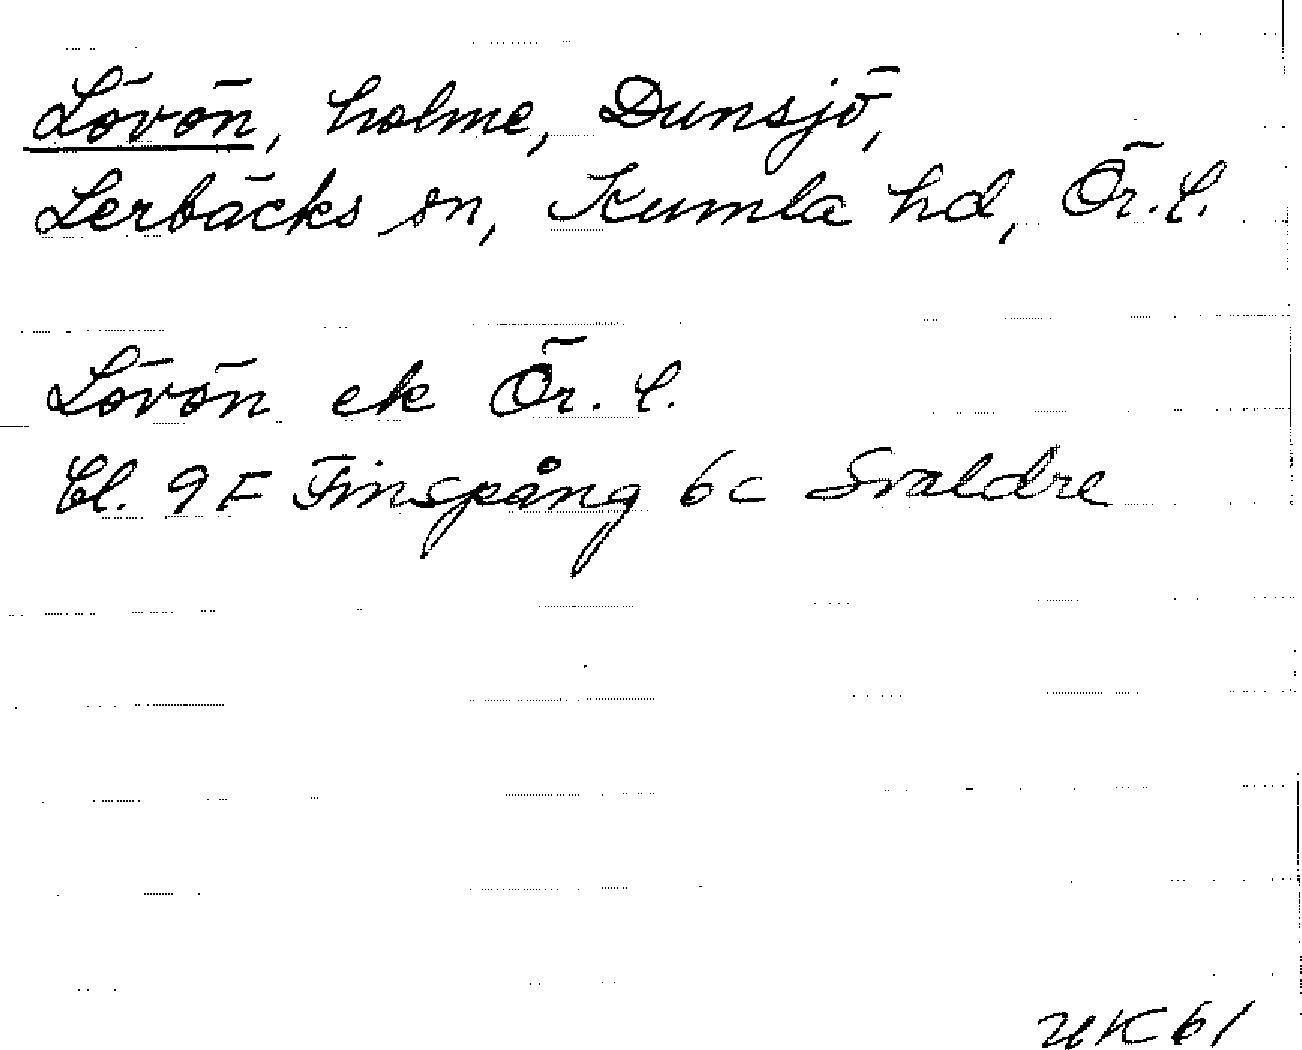 Lövön, holme, Dunsjö,
Lerbäcks sn, Kumla hd, Ör. l.
Lövön ek Ör. l.
Bl. 9 F Finspång 6c Svaldre
UK 61